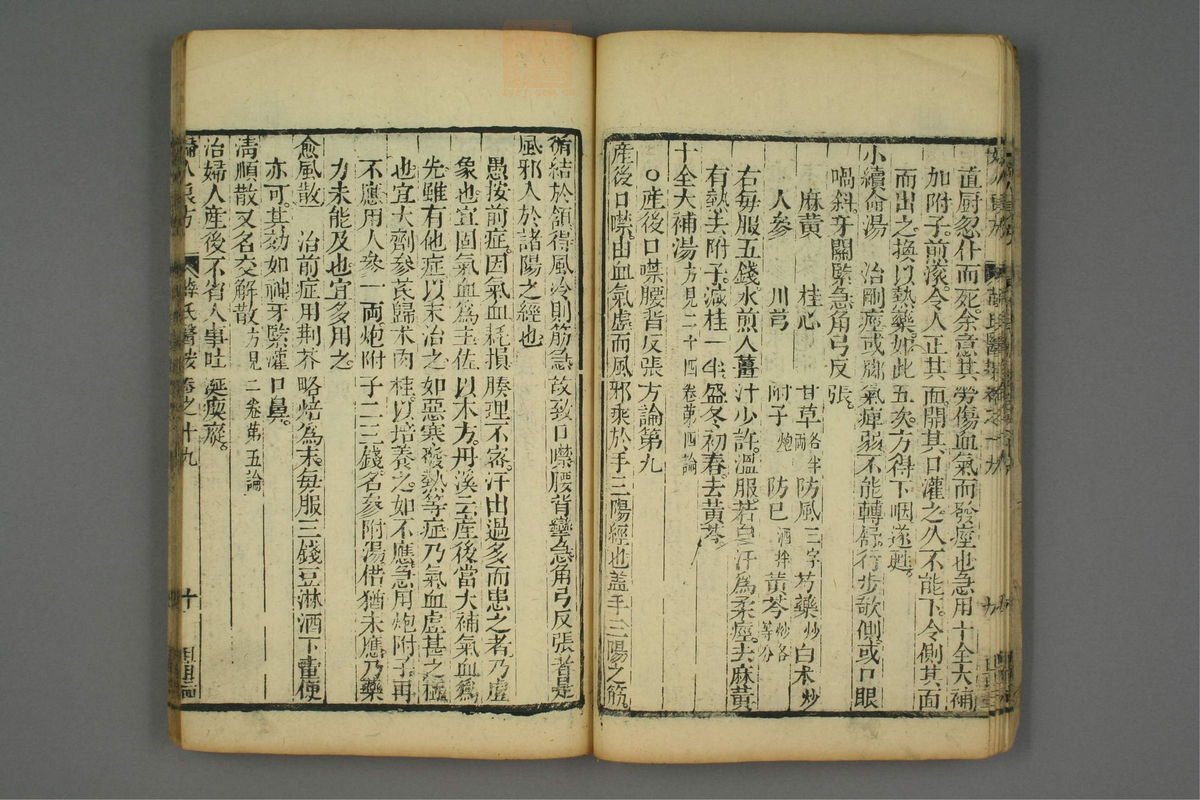 直厨忽仆而死余意其勞傷血氣而發痙也急用十全大補
加附子煎滾令人正其面開其口灌之久不能下令側其面
而出之換以熱藥如此五次方得下咽遂甦
小續命湯　治剛痙或脚氣痺弱不能轉側行步欹側或口眼
喎斜牙關緊急角弓反張
麻黃　桂心　甘草各半兩　防風三字　芍藥炒　白朮炒
人參　川芎　附子炮　防巳酒拌　黃芩炒各等分
右每服五錢水煎入薑汁少許溫服若自汗為柔痙去麻黃
有熱去附子減桂一半盛冬初春去黃芩
十全大補湯方見二十四卷第四論
○產後口噤腰背反張方論第九
產後口噤由血氣虛而風邪乘於手三陽經也蓋手三陽之筋
循結於頷得風冷則筋急故致口噤腰背攣急角弓反張者是
風邪入於諸陽之經也
愚按前症因氣血耗損腠理不密汗出過多而患之者乃虛
象也宜固氣血為主佐以本方丹溪云產後當大補氣血為
先雖有他症以末治之如惡寒發熱等症乃氣血虛甚之極
也宜大劑參芪歸朮肉桂以培養之如不應急用炮附子再
不應用人參一兩炮附子二三錢名參附湯倍猶未應乃藥
力未能及也宜多用之
愈風散　治前症用荆芥略焙為末每服三錢豆淋酒下童便
亦可其効如神牙緊灌口鼻
清順散又名交解散方見二卷第五論
治婦人產後不省人事吐涎瘈瘲
婦人良方　薛氏醫按卷之十九　十